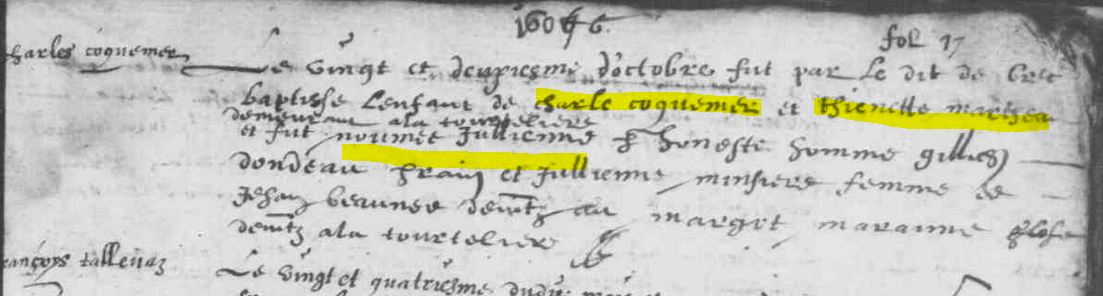 1606
fol 17
charles coquemer
Le vingt et deuxiesme d'octobre fut par le dit de
baptisse lenfant de charle coquemer et thienette
demeurant ala tourteliere
et fut noumee Jullienne p honeste homme gilles
dondeau prain et Jullienne minsiere femme de
Jehan beaunee demtz au margot maraine
demtz ala tourteliere
françoys tallevaz
Le vingt et quatriesme dudit